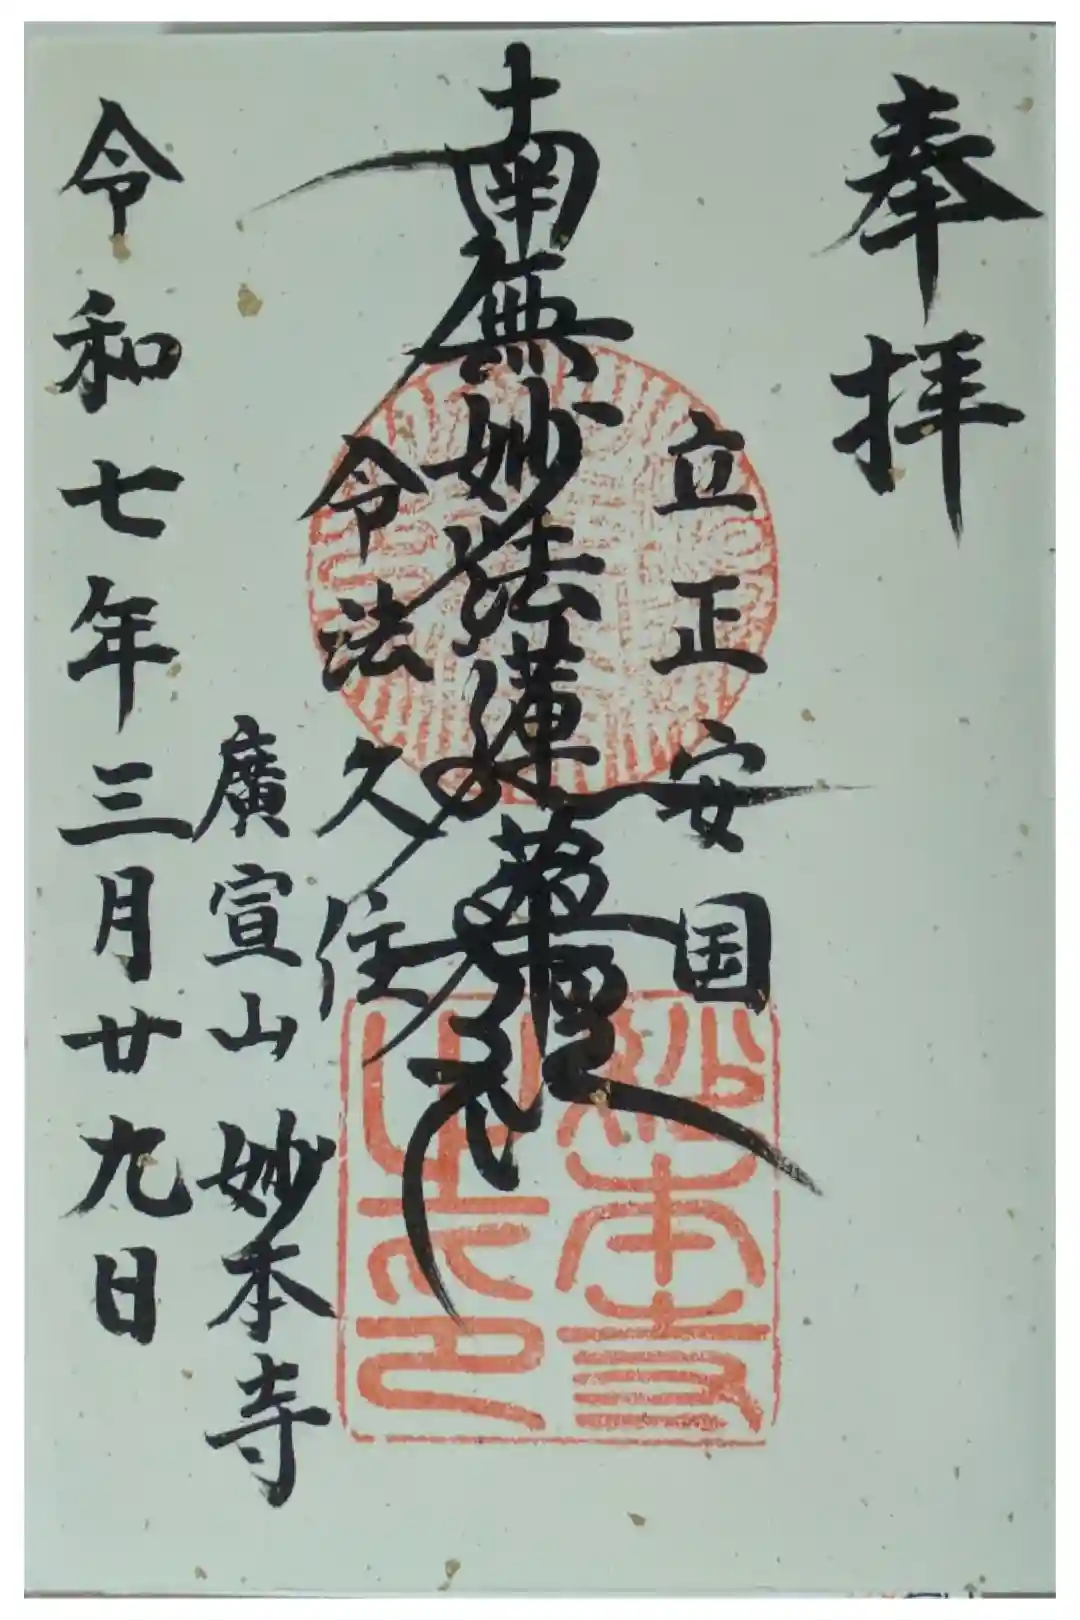 奉拝
立正安国
南無妙法蓮華経
令法久住
廣宣山 妙本寺
令和七年三月廿九日
妙本寺
之印